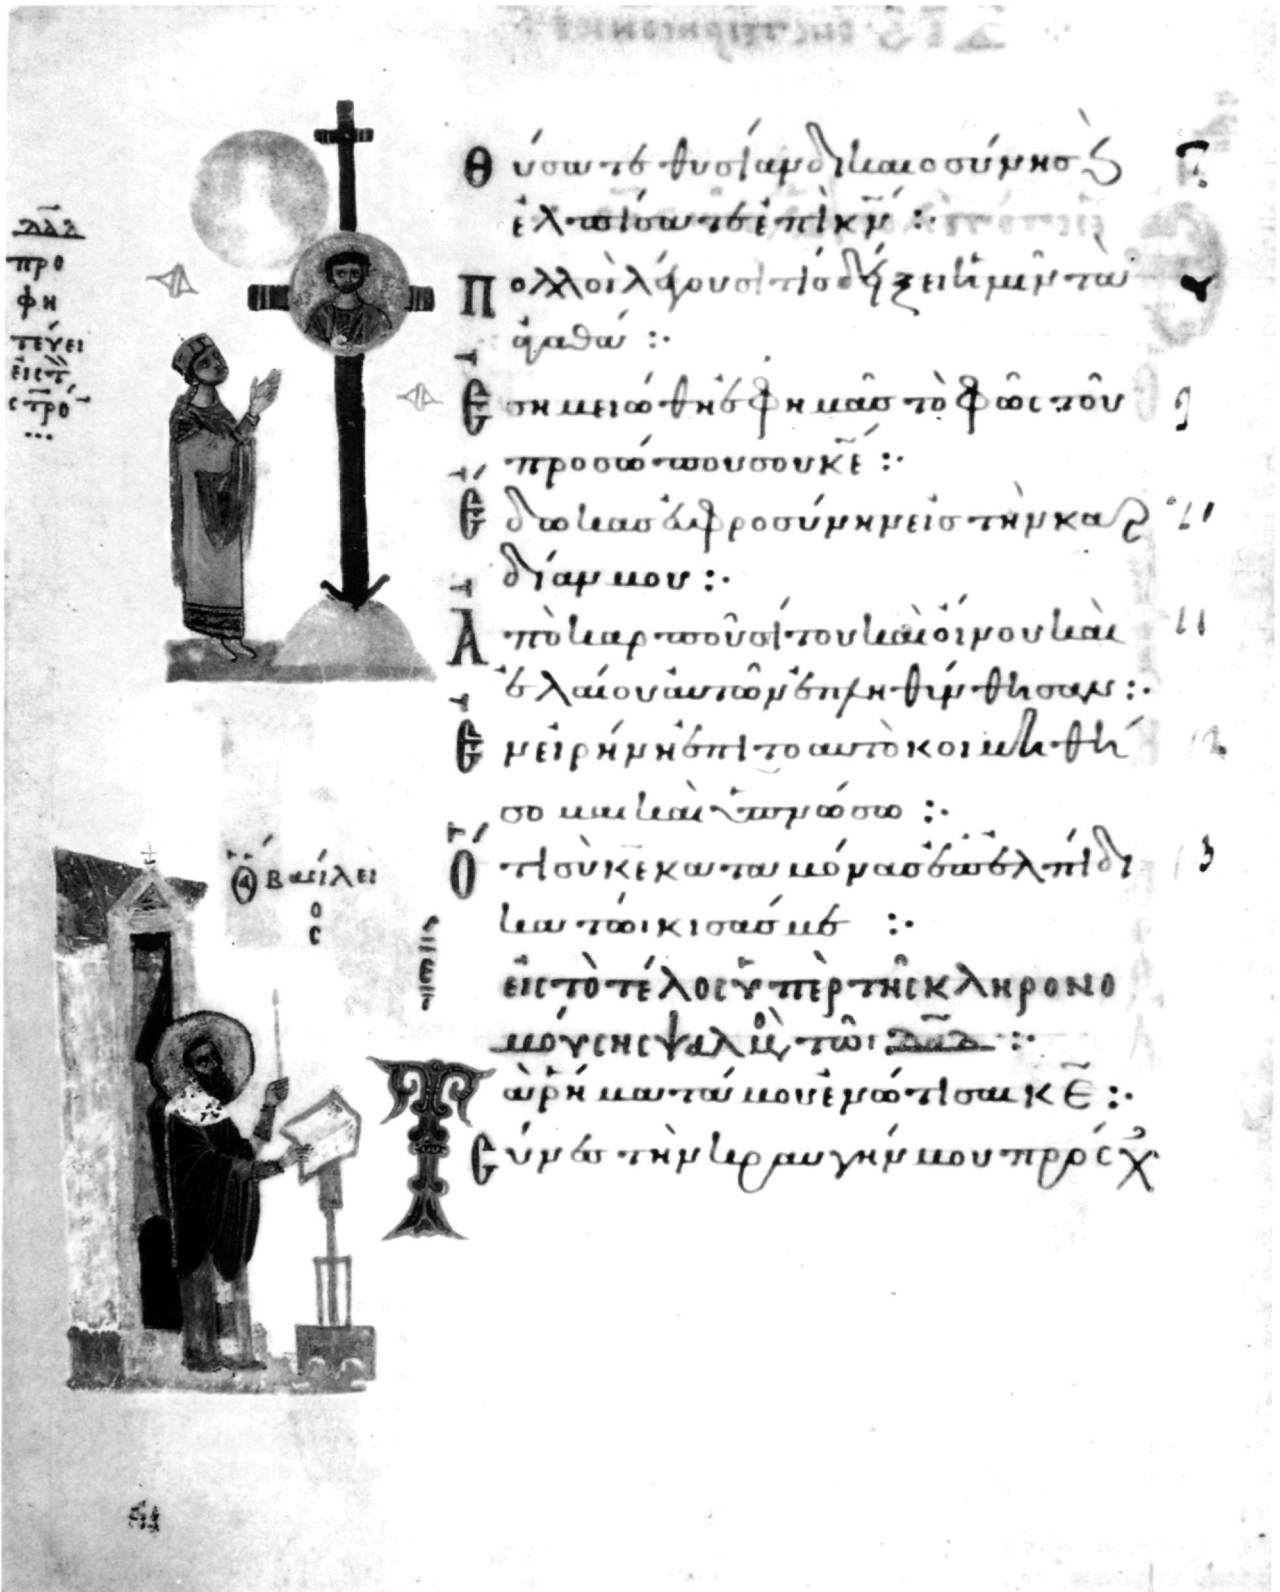 δαδ
προ
φη
τεύει
εἰς τ
στρό
Θύσατε θυσίαν δικαιοσύνησ ϗ
ἐλπίσατε ἐπὶ κν̄ :·
Πολλοὶ λέγουσι τίσ δείξει ἡμῖν τὰ
ἀγαθά :·
Ἐσημειώθη ἐφ ἡμᾶσ τὸ φῶς τοῦ
προσώπου σου κε̄ :·
Ἔδωκασ εὐφροσύνην εἰσ τὴν καρ
δίαν μου :·
Ἀπὸ καρποῦ σίτου καὶ οἴνου καὶ
ἐλαίου αὐτῶν ἐπληθύνθησαν :·
Ἐν εἰρήνη ἐπὶ το αυτὸ κοιμηθή
σομαι καὶ ὑπνώσω :·
Ὅτι σὺ κε̄ κατα μόνασ ἐπ ἐλπίδι
κατώικισάσ με :·
ὁ βασίλει
ο
ς
εἰς τὸ τέλος ὑπὲρ τῆς κληρονο
μούσης ψαλμ τῶι δαδ :·
Τὰ ῥήματά μου ἐνώτισαι κε̄ :·
Σύνεσ τὴν κραυγήν μου πρόσχ
9
11
12
13